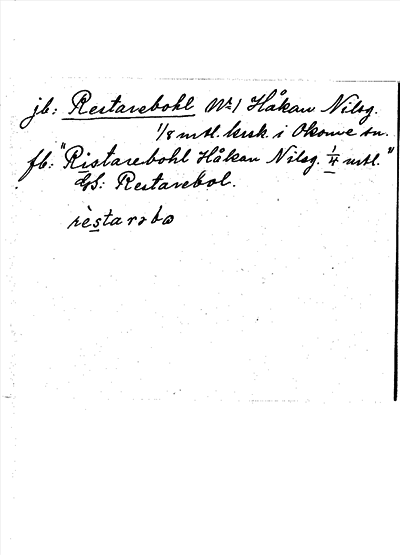 jb: Restarebohl No 1 Håkan Nilsg.
1/8 mtl. krsk. i Okome sn.
fb: "Ristarebohl Håkan Nilsg. 1/4 mtl."
GS: Restarebol.
rèstarəbɷ